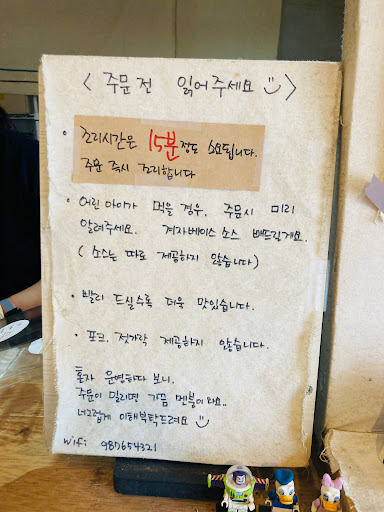 < 주문 전 읽어주세요 >
• 조리시간은 15분정도 소요됩니다.
주문 즉시 조리합니다
• 어린 아이가 먹을 경우. 주문시 미리
알려주세요. 겨자베이스 소스 빼드릴게요.
( 소스는 따로 제공하지 않습니다)
• 빨리 드실수록 더욱 맛있습니다.
• 포크. 젓가락 제공하지 않습니다.
혼자 운영하다 보니.
주문이 밀리면 가끔 멘붕이와요..
너그럽게 이해부탁드려요
wifi 987654321